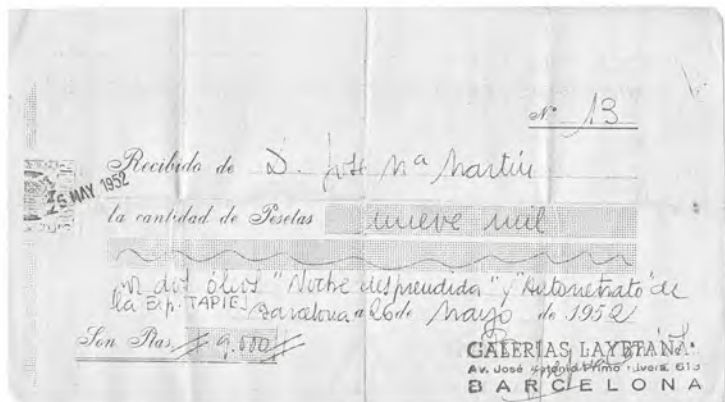 Nº 13
Recibido de D. José Mª Martín
25 MAY 1952
la cantidad de Pesetas nueve mil
por dos óleos "Noche desprendida" y "Autorretrato" de
la Exp. TAPIES
Barcelona a 26 de Mayo de 1952
Son Ptas. # 9.000 #
GALERIAS LAYETANAS
Av. José Antonio Primo Rivera 613
BARCELONA